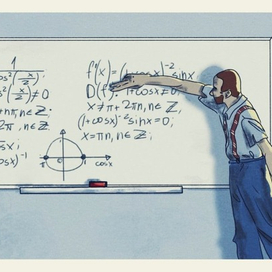 1
cos²(x/2);
cos²(x/2)≠0
π+πn,n∈Z,
2πn,n∈Z.
cosx;
cosx)⁻¹
π 0 1 cosx
f'(x)=(1+cosx)⁻²sinx
D(f'): 1+cosx≠0
x≠π+2πn,n∈Z,
(1+cosx)⁻²sinx=0;
x=πn,n∈Z;